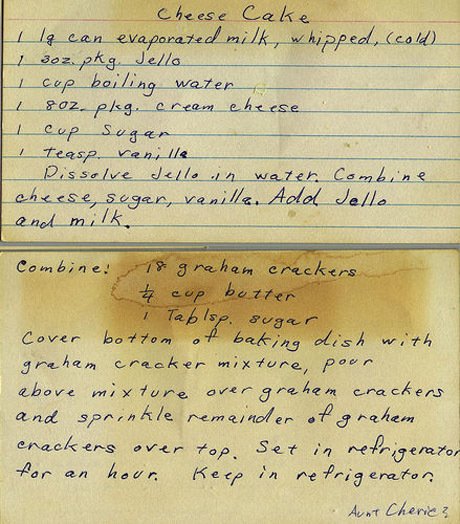 Cheese Cake
1 lg can evaporated milk, whipped, (cold)
1 3oz. pkg. Jello
1 cup boiling water
1 8oz. pkg. cream cheese
1 cup sugar
1 teasp. vanilla
Dissolve Jello in water. Combine
cheese, sugar, vanilla. Add Jello
and milk.
Combine: 18 graham crackers
1/4 cup butter
1 Tablsp. sugar
Cover bottom of baking dish with
graham cracker mixture, pour
above mixture over graham crackers
and sprinkle remainder of graham
crackers over top. Set in refrigerator
for an hour. Keep in refrigerator.
Aunt Cherie